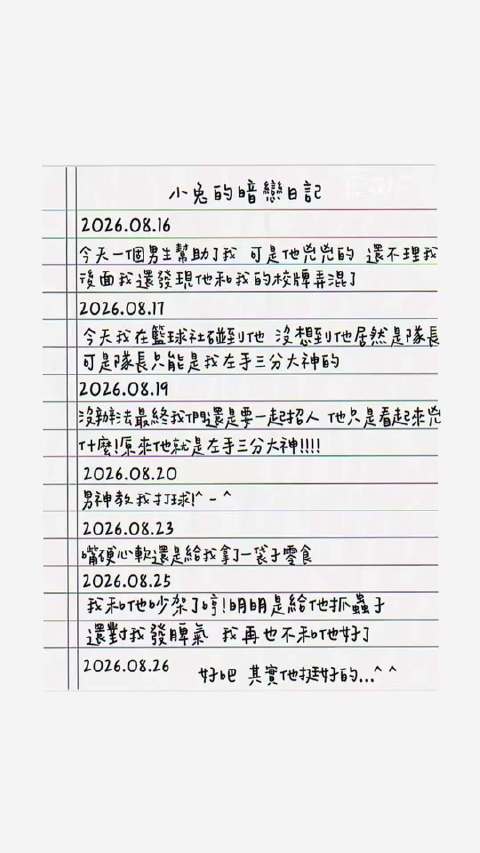 小兔的暗戀日記
2026.08.16
今天一個男生幫助了我 可是他兇兇的 還不理我
後面我還發現他和我的校牌弄混了
2026.08.17
今天我在籃球社碰到他 沒想到他居然是隊長
可是隊長只能是我左手三分大神的
2026.08.19
沒辦法最終我們還是要一起招人 他只是看起來兇
什麼!原來他就是左手三分大神!!!!
2026.08.20
男神教我打球!^-^
2026.08.23
嘴硬心軟還是給我拿了一袋子零食
2026.08.25
我和他吵架了哼!明明是給他抓蟲子
還對我發脾氣 我再也不和他好了
2026.08.26 好吧 其實他挺好的...^ ^